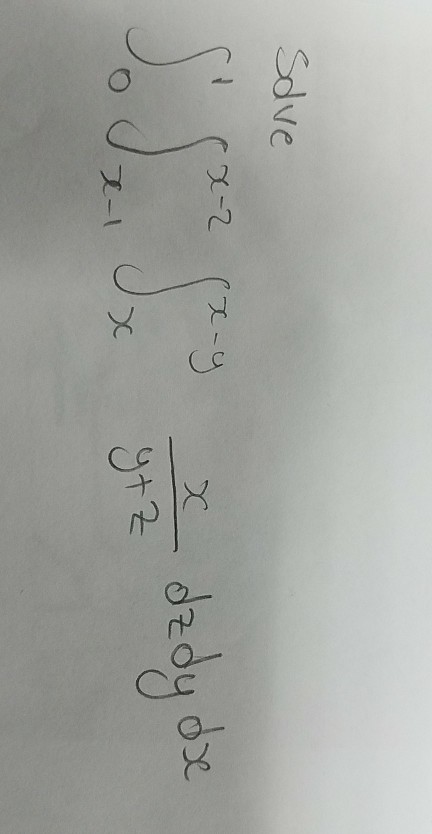 Solve
∫₀¹ ∫ₓ₋₁ˣ⁻² ∫ₓˣ⁻ʸ x/(y+z) dz dy dx